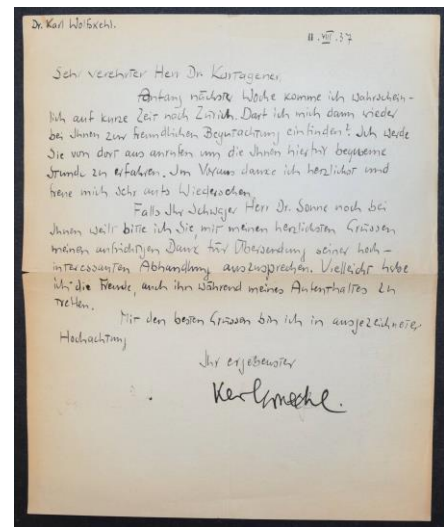 Dr. Karl Wolfskehl.
11. VIII. 37
Sehr verehrter Herr Dr. Kartagener,
Anfang nächster Woche komme ich wahrschein-
lich auf kurze Zeit nach Zürich. Darf ich mich dann wieder
bei Ihnen zur freundlichen Begutachtung einfinden? Ich werde
Sie von dort aus anrufen um die Ihnen hierfür bequeme
Stunde zu erfahren. Im Voraus danke ich herzlichst und
freue mich sehr aufs Wiedersehen.
Falls Ihr Schwager Herr Dr. Sonne noch bei
Ihnen weilt bitte ich Sie, mit meinen herzlichsten Grüssen
meinen aufrichtigen Dank für Übersendung seiner hoch-
interessanten Abhandlung auszusprechen. Vielleicht habe
ich die Freude, auch ihn während meines Aufenthaltes zu
treffen.
Mit den besten Grüssen bin ich in ausgezeichneter
Hochachtung
Ihr ergebenster
Karl Wolfskehl.